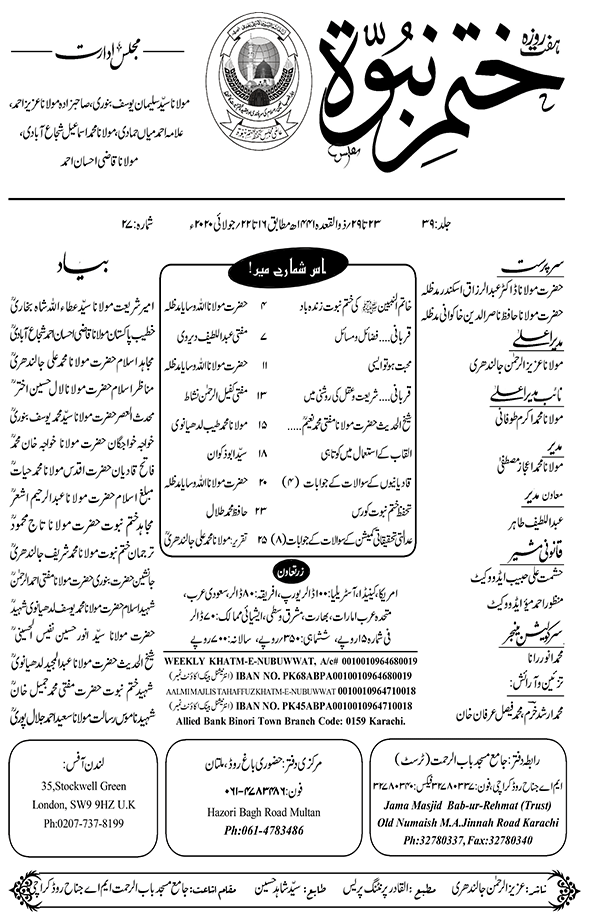 ہفت روزہ
ختم نبوۃ
مجلس ادارت
مولانا سید سلیمان یوسف بنوری، صاحبزادہ مولانا عزیز احمد،
علامہ احمد میاں حمادی، مولانا محمد اسماعیل شجاع آبادی،
مولانا قاضی احسان احمد
جلد: ۳۹
۲۳ تا ۲۹/ ذوالقعدہ ۱۴۴۱ھ مطابق ۱۶ تا ۲۲/ جولائی ۲۰۲۰ء
شمارہ: ۲۷
سرپرست
حضرت مولانا ڈاکٹر عبدالرزاق اسکندر مدظلہ
حضرت مولانا حافظ ناصر الدین خاکوانی مدظلہ
مدیر اعلیٰ
مولانا عزیز الرحمٰن جالندھری
نائب مدیر اعلیٰ
مولانا محمد اکرم طوفانی
مدیر
مولانا محمد اعجاز مصطفیٰ
معاون مدیر
عبداللطیف طاہر
قانونی مشیر
حشمت علی حبیب ایڈووکیٹ
منظور احمد میؤ ایڈووکیٹ
سرکولیشن منیجر
محمد انور رانا
تزئین و آرائش:
محمد ارشد خرم، محمد فیصل عرفان خان
اس شمارے میں!
خاتم النبیین ﷺ کی ختم نبوت زندہ باد ۴ حضرت مولانا اللہ وسایا مدظلہ
قربانی.... فضائل و مسائل ۷ مفتی عبداللطیف دیروی
محبت ہو تو ایسی ۱۱ حضرت مولانا اللہ وسایا مدظلہ
قربانی.... شریعت و عقل کی روشنی میں ۱۳ مفتی کفیل الرحمٰن نشاط
شیخ الحدیث حضرت مولانا مفتی محمد نعیمؒ..... ۱۵ مولانا محمد طیب لدھیانوی
القاب کے استعمال میں کوتاہی ۱۸ سید ابوذکوان
قادیانیوں کے سوالات کے جوابات (۴) ۲۰ حضرت مولانا اللہ وسایا مدظلہ
تحفظ ختم نبوت کورس ۲۳ حافظ محمد طلال
عدالتی تحقیقاتی کمیشن کے سوالات کے جوابات (۸) ۲۵ تقریر: مولانا محمد علی جالندھریؒ
زرتعاون
امریکا، کینیڈا، آسٹریلیا: ۱۰۰ ڈالر یورپ، افریقہ: ۸۰ ڈالر، سعودی عرب،
متحدہ عرب امارات، بھارت، مشرق وسطیٰ، ایشیائی ممالک: ۷۰ ڈالر
فی شمارہ ۱۵ روپے، ششماہی: ۳۵۰ روپے، سالانہ: ۷۰۰ روپے
WEEKLY KHATM-E-NUBUWWAT, A/c# 0010010964680019
IBAN NO. PK68ABPA0010010964680019 (انٹرنیشنل بینک اکاؤنٹ نمبر)
AALMI MAJLIS TAHAFFUZ KHATM-E-NUBUWWAT 0010010964710018
IBAN NO. PK45ABPA0010010964710018 (انٹرنیشنل بینک اکاؤنٹ نمبر)
Allied Bank Binori Town Branch Code: 0159 Karachi.
بیاد
امیر شریعت مولانا سید عطاء اللہ شاہ بخاریؒ
خطیب پاکستان مولانا قاضی احسان احمد شجاع آبادیؒ
مجاہد اسلام حضرت مولانا محمد علی جالندھریؒ
مناظر اسلام حضرت مولانا لال حسین اخترؒ
محدث العصر حضرت مولانا سید محمد یوسف بنوریؒ
خواجہ خواجگان حضرت مولانا خواجہ خان محمدؒ
فاتح قادیان حضرت اقدس مولانا محمد حیاتؒ
مبلغ اسلام حضرت مولانا عبدالرحیم اشعرؒ
مجاہد ختم نبوت حضرت مولانا تاج محمودؒ
ترجمان ختم نبوت مولانا محمد شریف جالندھریؒ
جانشین حضرت بنوری حضرت مولانا مفتی احمد الرحمٰنؒ
شہید اسلام حضرت مولانا محمد یوسف لدھیانوی شہیدؒ
حضرت مولانا سید انور حسین نفیس الحسینیؒ
شیخ الحدیث حضرت مولانا عبدالمجید لدھیانویؒ
شہید ختم نبوت حضرت مفتی محمد جمیل خانؒ
شہید ناموس رسالت مولانا سعید احمد جلال پوریؒ
رابطہ دفتر: جامع مسجد باب الرحمت (ٹرسٹ)
ایم اے جناح روڈ کراچی، فون: ۳۲۷۸۰۳۳۷ فیکس: ۳۲۷۸۰۳۴۰
Jama Masjid Bab-ur-Rehmat (Trust)
Old Numaish M.A.Jinnah Road Karachi
Ph:32780337, Fax:32780340
مرکزی دفتر: حضوری باغ روڈ، ملتان
فون: ۰۶۱-۴۷۸۳۴۸۶
Hazori Bagh Road Multan
Ph:061-4783486
لندن آفس:
35,Stockwell Green
London, SW9 9HZ U.K
Ph:0207-737-8199
ناشر: عزیز الرحمٰن جالندھری مطبع: القادر پرنٹنگ پریس طابع: سید شاہد حسین مقام اشاعت: جامع مسجد باب الرحمت ایم اے جناح روڈ کراچی